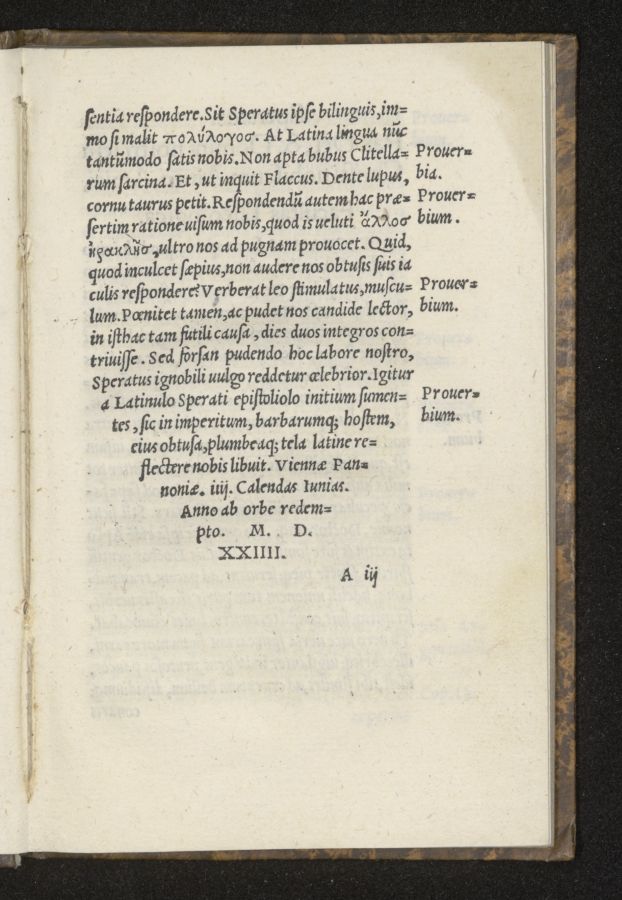 sentia respondere. Sit Speratus ipse bilinguis, im=
mo si malit πολύλογοσ. At Latina lingua nūc
tantūmodo satis nobis. Non apta bubus Clitella=
rum sarcina. Et, ut inquit Flaccus. Dente lupus,
cornu taurus petit. Respondendū autem hac præ=
sertim ratione uisum nobis, quod is ueluti ἄλλοσ
ἡρακλῆσ, ultro nos ad pugnam prouocet. Quid,
quod inculcet sæpius, non audere nos obtusis suis ia
culis respondere? Verberat leo stimulatus, muscu=
lum. Pœnitet tamen, ac pudet nos candide lector,
in isthac tam futili causa, dies duos integros con=
triuisse. Sed forsan pudendo hoc labore nostro,
Speratus ignobili uulgo reddetur cælebrior. Igitur
a Latinulo Sperati epistoliolo initium sumen=
tes, sic in imperitum, barbarumq; hostem,
eius obtusa, plumbeaq; tela latine re=
flectere nobis libuit. Viennæ Pan=
noniæ. iiij. Calendas Iunias.
Anno ab orbe redem=
pto. M. D.
XXIIII.
A iij
Prouer=
bia.
Prouer=
bium.
Prouer=
bium.
Prouer=
bium.